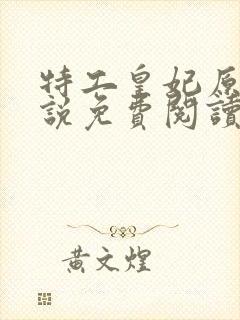 特工皇妃原
說免費閱讀
黃文煌